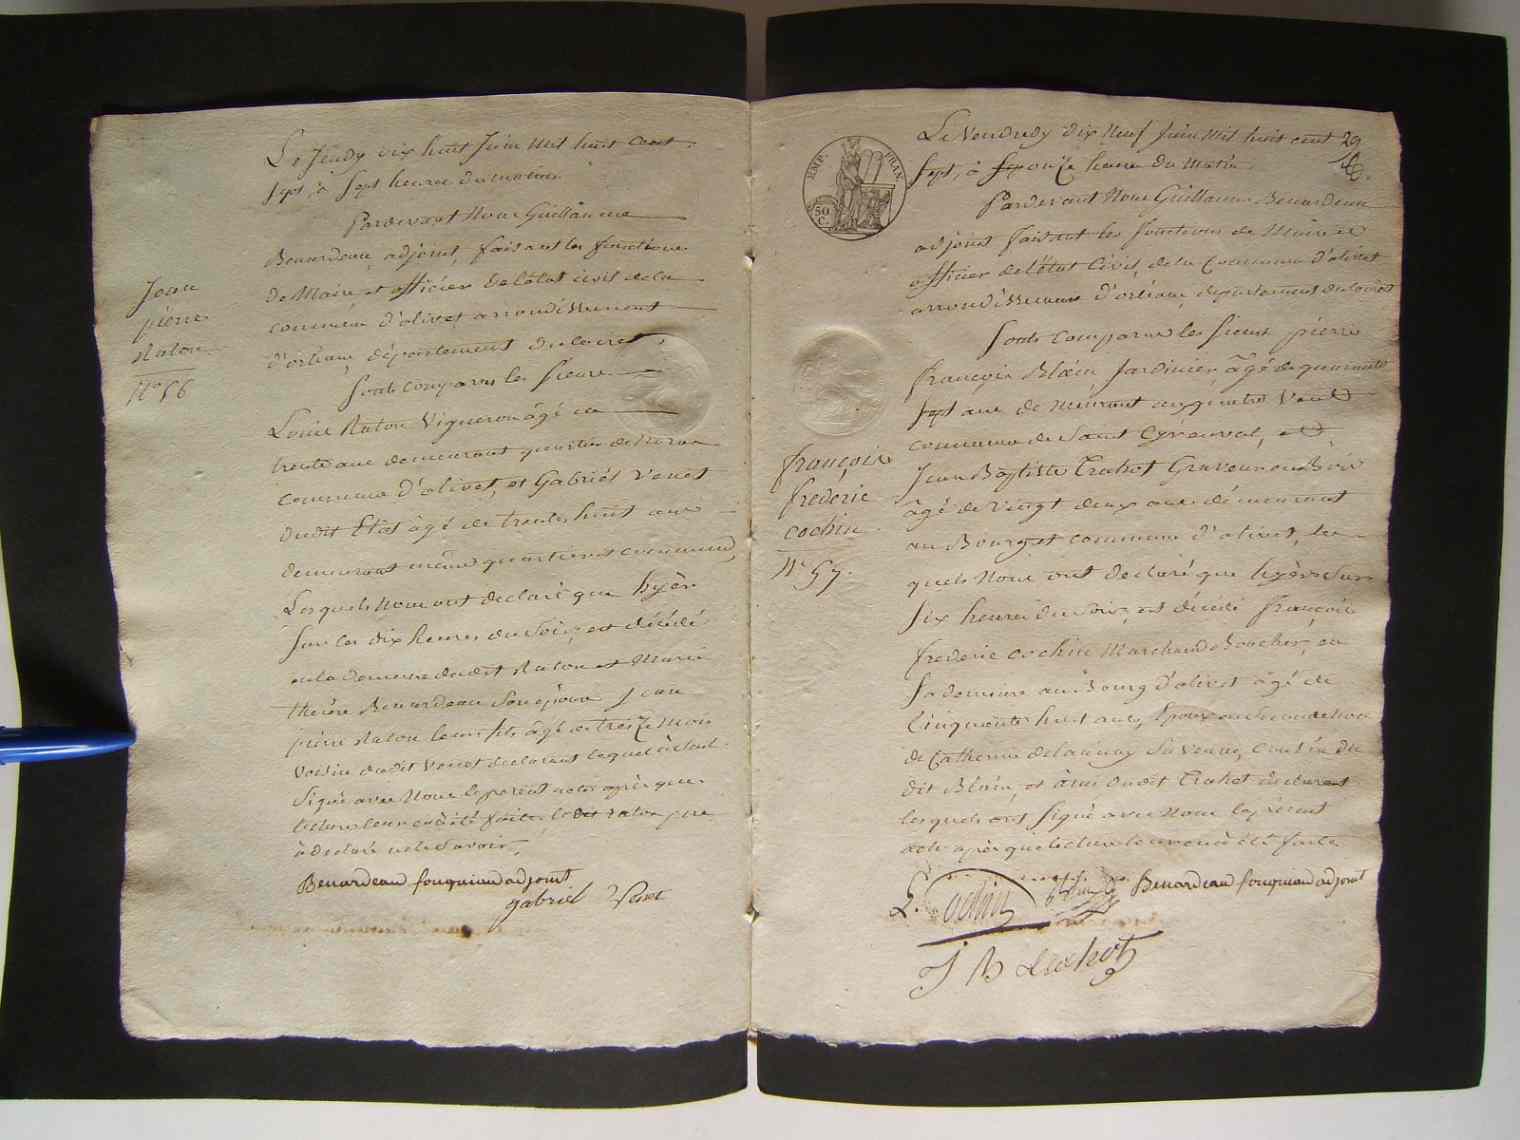 Le Jeudy dix huit Juin mil huit cent
sept, à sept heures du matin
Pardevant Nous Guillaume
Benardeau, adjoint, faisant les fonctions
de Maire et officier de l'état civil de la
commune d'olivet arrondissement
d'orléans, département du loiret,
Sont comparus les sieurs
Louis Ratou Vigneron âgé de
trente ans demeurant quartier de
commune d'olivet, et Gabriel Venet
dudit Etat âgé de trente huit ans
demeurant même quartier et commune,
Lesquels Nous ont declaré que hyèr
sur les dix heures du soir, est décédé
en la demeure dudit Ratou et Marie
therèse Benardeau son épouse Jean
pierre Ratou leur fils âgé de treize mois
voisin dudit Venet declarant lequel à
Signé avec Nous le present acte après que
lecture leur en à été faite, ledit ratou pere
à declaré ne le Savoir,
Benardeau fouquiau adjoint
gabriel Venet
Jean
pierre
Ratou
N° 56
Le Vendredy dix Neuf Juin mil huit cent
29
sept, à onze heure du Matin
Pardevant Nous Guillaume Benardeau
adjoint faisant les fonctions de Maire et
officier de l'état Civil, de la Commune d'olivet
arrondissement d'orléans, département du loiret
Sont comparus les sieurs pierre
françois Blain, Jardinier, âgé de quarante
sept ans demeurant aux quatre Vents
commune de Saint Cyr en val, et
Jean Baptiste Trahot Graveur en Bois
âgé de vingt deux ans demeurant
au Bourg et commune d'olivet, les
quels Nous ont declaré que hyèr sur
six heures du soir, est décédé françois
frederic cochin Marchand Boucher, en
sa demeure au Bourg d'olivet âgé de
Cinquante huit ans, Epoux en
de Catherine delaunay sa veuve, Cousin du
dit Blain, et ami dudit Trahot declarant
lesquels ont signé avec Nous le présent
acte après que lecture leur en à été faite
françois
frederic
cochin
N° 57.
EMP. FRAN.
50 C.
Cochin
Benardeau fouquiau adjoint
J B trahot